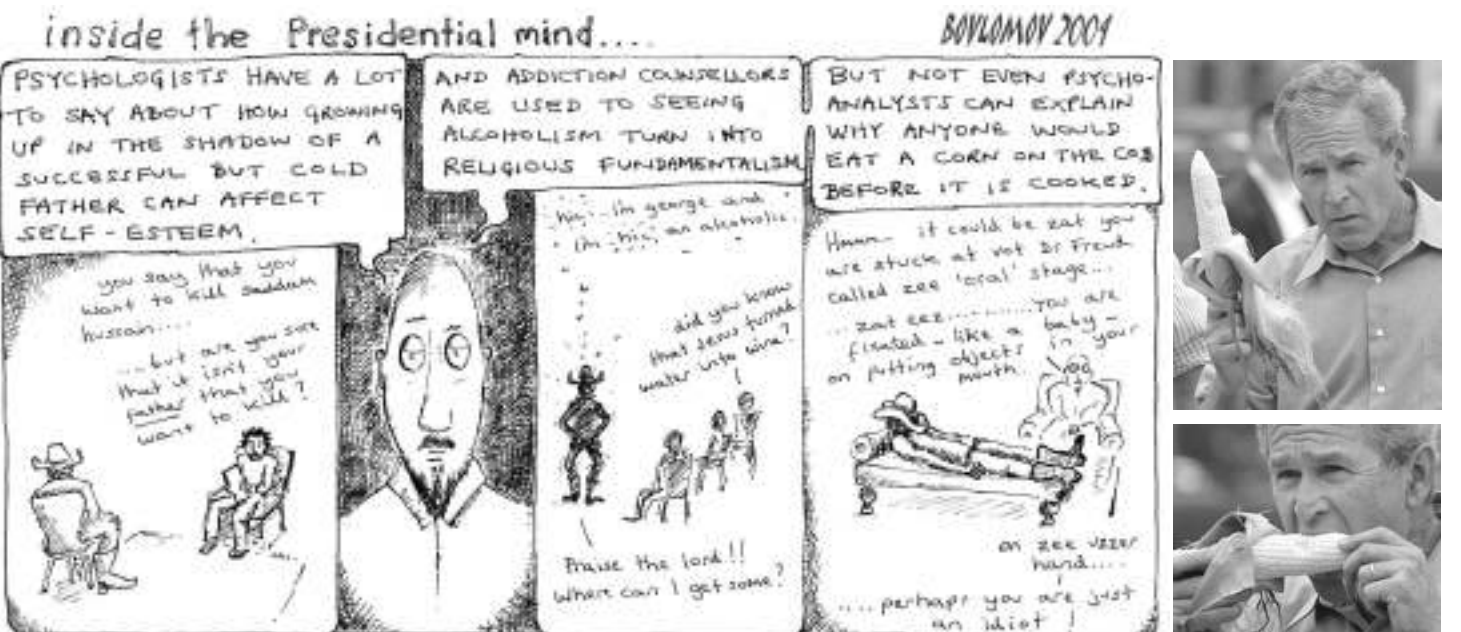 inside the Presidential mind....
BOVLOMOV 2004
PSYCHOLOGISTS HAVE A LOT
TO SAY ABOUT HOW GROWING
UP IN THE SHADOW OF A
SUCCESSFUL BUT COLD
FATHER CAN AFFECT
SELF-ESTEEM.
you say that you
want to kill saddam
hussain....
...but are you sure
that it isn't your
father that you
want to kill?
AND ADDICTION COUNSELLORS
ARE USED TO SEEING
ALCOHOLISM TURN INTO
RELIGIOUS FUNDAMENTALISM
'hic'.. I'm george and
I'm 'hic' an alcoholic.
did you know
that Jesus turned
water into wine?
Praise the lord!!
Where can I get some?
BUT NOT EVEN PSYCHO-
ANALYSTS CAN EXPLAIN
WHY ANYONE WOULD
EAT A CORN ON THE COB
BEFORE IT IS COOKED.
Hmmm.. it could be zat you
are stuck at vot Dr Freud
called zee 'oral' stage...
...zat eez...........you are
fixated - like a baby -
on putting objects in your
mouth.
on zee uzzer
hand....
....perhaps you are just
an idiot!